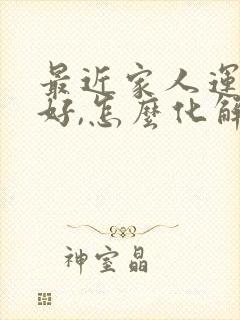 最近家人運
好,怎麼化解
神室晶